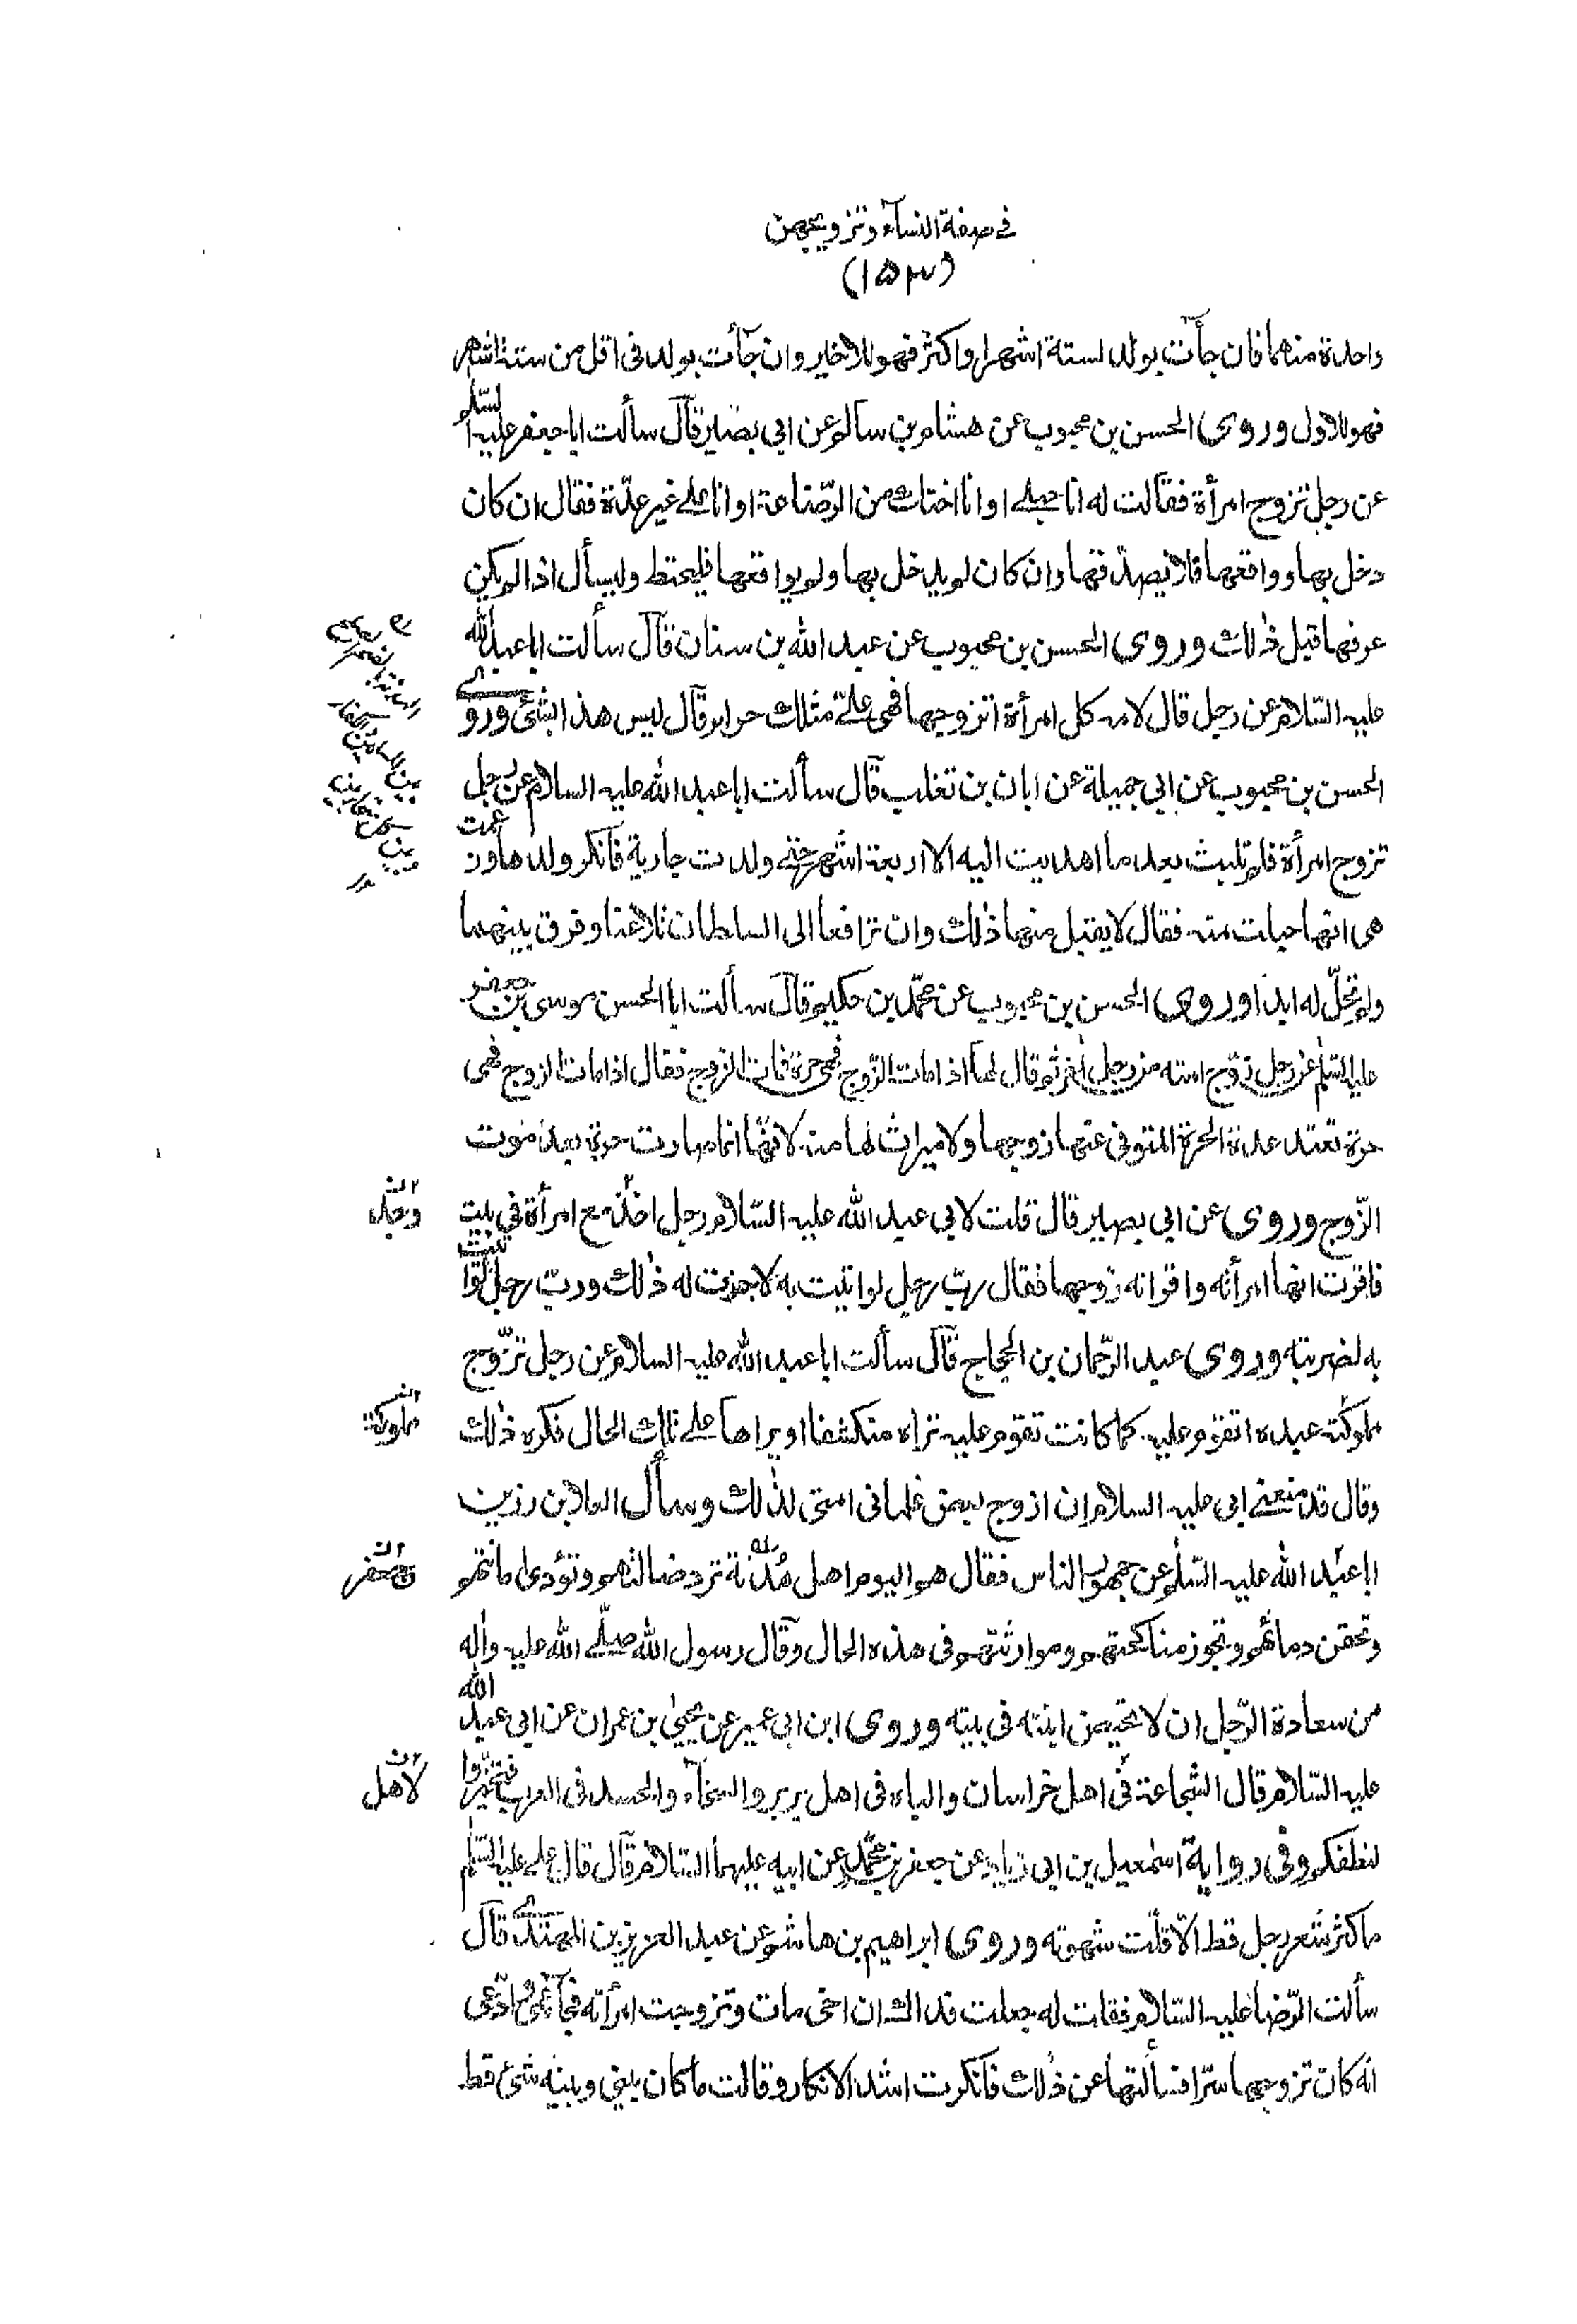 في صفة النسآء وتزويجهن
(١٥٣)
واحدة منهما فان جآأت بولد لستة اشهر او اكثر فهو للاخير وان جآأت بولد في اقل من ستة اشهر
فهو للاول وروى الحسن بن محبوب عن هشام بن سالم عن ابي بصير قال سألت ابا جعفر عليه السلم
عن رجل تزوج امرأة فقالت له انا حبلى او انا اختك من الرّضاعة او انا على غير عدّة فقال ان كان
دخل بها وواقعها فلا يصدّقها وان كان لم يدخل بها ولم يواقعها فليحتط وليسأل اذا لم يكن
عرفها قبل ذلك وروى الحسن بن محبوب عن عبد الله بن سنان قال سألت ابا عبد الله
عليه السّلام عن رجل قال لامه كل امرأة اتزوجها فهي علىّ مثلك حرام قال ليس هذا بشئ وروى
الحسن بن محبوب عن ابي جميلة عن ابان بن تغلب قال سألت ابا عبد الله عليه السلام عن رجل
تزوج امرأة فلم تلبث بعد ما اهديت اليه الا اربعة اشهر حتى ولدت جارية فانكر ولدها وزعمت
هي انها حبلت منه فقال لا يقبل منها ذلك وان ترافعا الى السلطان تلاعنا وفرق بينهما
ولم تحلّ له ابدا وروى الحسن بن محبوب عن محمّد بن حكيم قال سألت ابا الحسن موسى بن جعفر
عليه السّلم عن رجل زوّج امته من رجل آخر ثم قال لها اذا مات الزّوج فهي حرة فمات الزوج فقال اذا مات الزوج فهي
حرة تعتد عدة الحرة المتوفى عنها زوجها ولا ميراث لها منه لانها انما صارت حرة بعد موت
الزّوج وروى عن ابي بصير قال قلت لابي عبد الله عليه السّلام رجل اخذ مع امرأة في بيت
وجد
فاقرت انها امرأته واقر انه زوجها فقال ربّ رجل لو اتيت به لاجزت له ذلك ورب رجل لو اتيت
به لضربته وروى عبد الرّحمان بن الحجاج قال سألت ابا عبد الله عليه السلام عن رجل تزّوج
مملوكته عبده اتقوم عليه كما كانت تقوم عليه تراه منكشفا او يراها على تلك الحال فكره ذلك
مملوكة
وقال قد منعني ابي عليه السلام ان ازوج بعض غلماني امتى لذلك وسأل العلا بن رزين
ابا عبد الله عليه السّلم عن جمهور الناس فقال هم اليوم اهل هُدنة ترد ضالتهم وتؤدى امانتهم
وتحقن دمائهم وتجوز مناكحتهم وموارثتهم في هذه الحال وقال رسول الله صلّى الله عليه وآله
من سعادة الرّجل ان لا تحيض ابنته في بيته وروى ابن ابى عمير عن يحيىٰ بن عمران عن ابي عبد الله
عليه السّلام قال الشجاعة في اهل خراسان والباه في اهل بربر والسخآء والحسد في العرب فتخيّروا
لاهل
لنطفكم وفي رواية اسمعيل بن ابى زياد عن جعفر بن محمّد عن ابيه عليهما السّلام قال قال علي عليه السّلم
ما كثر شعر رجل قط الّا قلّت شهوته وروى ابراهيم بن هاشم عن عبد العزيز بن المهتدى قال
سألت الرّضا عليه السّلام فقلت له جعلت فداك ان اخى مات وتزوجت امرأته فجآء عمّي وادّعى
انه كان تزوجها سرّا فسألتها عن ذلك فانكرت اشد الانكار وقالت ما كان بيني وبينه شئ قط